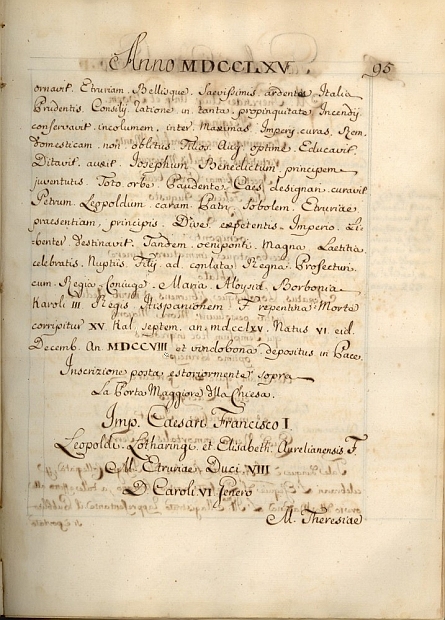 Anno MDCCLXV.
95
ornavit. Etruriam. Bellisque. Saevissimis. ardente. Italia
Prudentis. Consilij. ratione. in. tanta. propinquitate. Incendij.
conservavit. incolumem. inter. Maximas. Imperij. curas. Rem.
domesticam. non. oblitus. Filios. Aug. optime. Educavit.
Ditavit. auxit. Josephum. Benedictum. principem
juventutis. Toto. orbe. Gaudente. Caes. designari. curavit.
Petrum. Leopoldum. caram. Patri. Sobolem. Etruriae
praesentiam. principis. Dive. expetentis. Imperio. Li-
benter. Destinavit. Tandem. oeniponti. Magna. Laetitia
celebratis. Nuptiis. Filij. ad. conlata. Regna. Profecturi.
cum. Regia. Coniuge. Maria. Aloysia. Borbonia
Karoli III Regis. Hispaniohem. F. repentina. Morte
corripitur XV Kal. Septem. an. MDCCLXV. Natus VI eid.
Decemb. An MDCCVIII et vindobonae depositus in Pace.
Inscrizione posta esteriormente sopra
La Porta Maggiore della Chiesa.
Imp. Caesari Francisco I.
Leopoldi. Lotharingi. et Elisabeth. Aurelianensis F.
M. Etruriae Duci VIII
D Caroli VI Genero
M. Theresiae